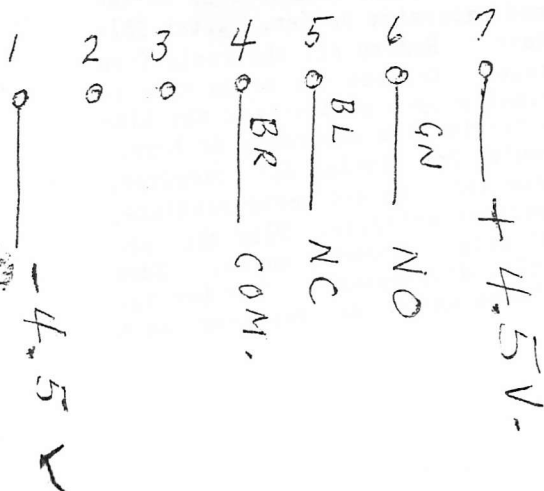 1 2 3 4 5 6 7
BR BL GN
- 4.5 V COM. NC NO + 4.5 V.